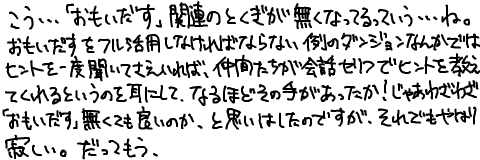 こう…「おもいだす」関連のとくぎが無くなってるっていう…ね。
おもいだすをフル活用しなければならない例のダンジョンなんかでは
ヒントを一度聞いてさえいれば、仲間たちが会話セリフでヒントを教え
てくれるというのを耳にして、なるほどその手があったか!じゃあわざわざ
「おもいだす」無くても良いのか、と思いはしたのですが、それでもやはり
寂しい。だってもう、